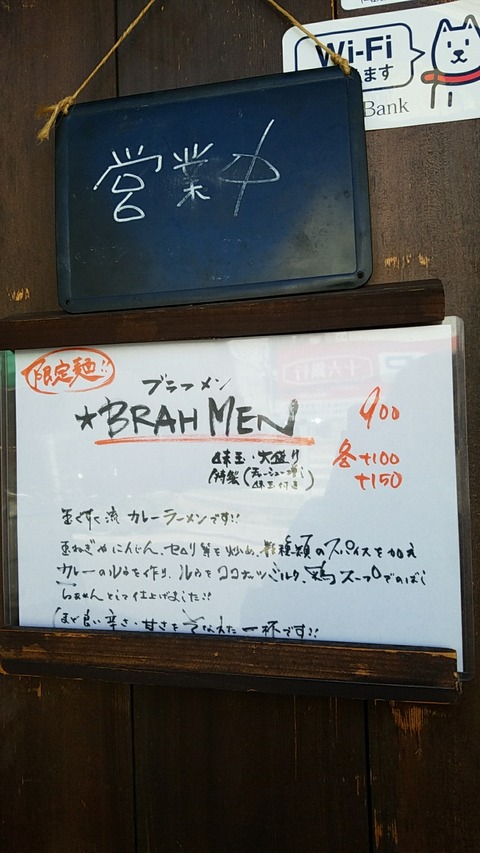 Wi-Fi
ます
Bank
営業中
限定麺!!
ブラフメン
★BRAH MEN 900
味玉・大盛り 各+100
特製(チャーシュー増し 味玉付き) +150
流 カレーラーメンです!!
玉ねぎやにんじん、セロリ等を炒め、数種類のスパイスを加え
カレーのルウを作り、ルウをココナッツミルク、鶏スープでのばし
らぁめんとして仕上げました!!
ほど良い辛さ・甘さをそなえた一杯です!!